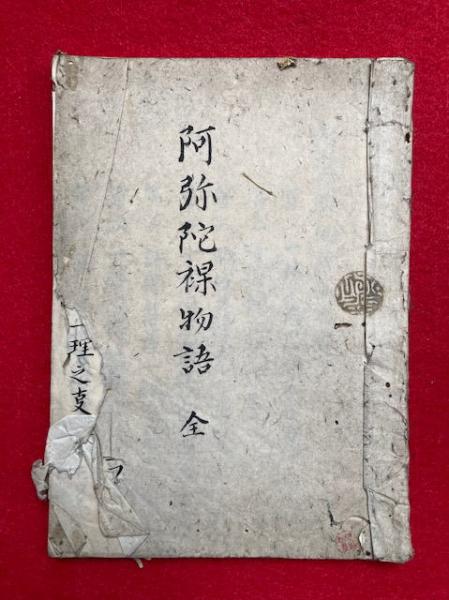 阿弥陀裸物語 全
一理之支